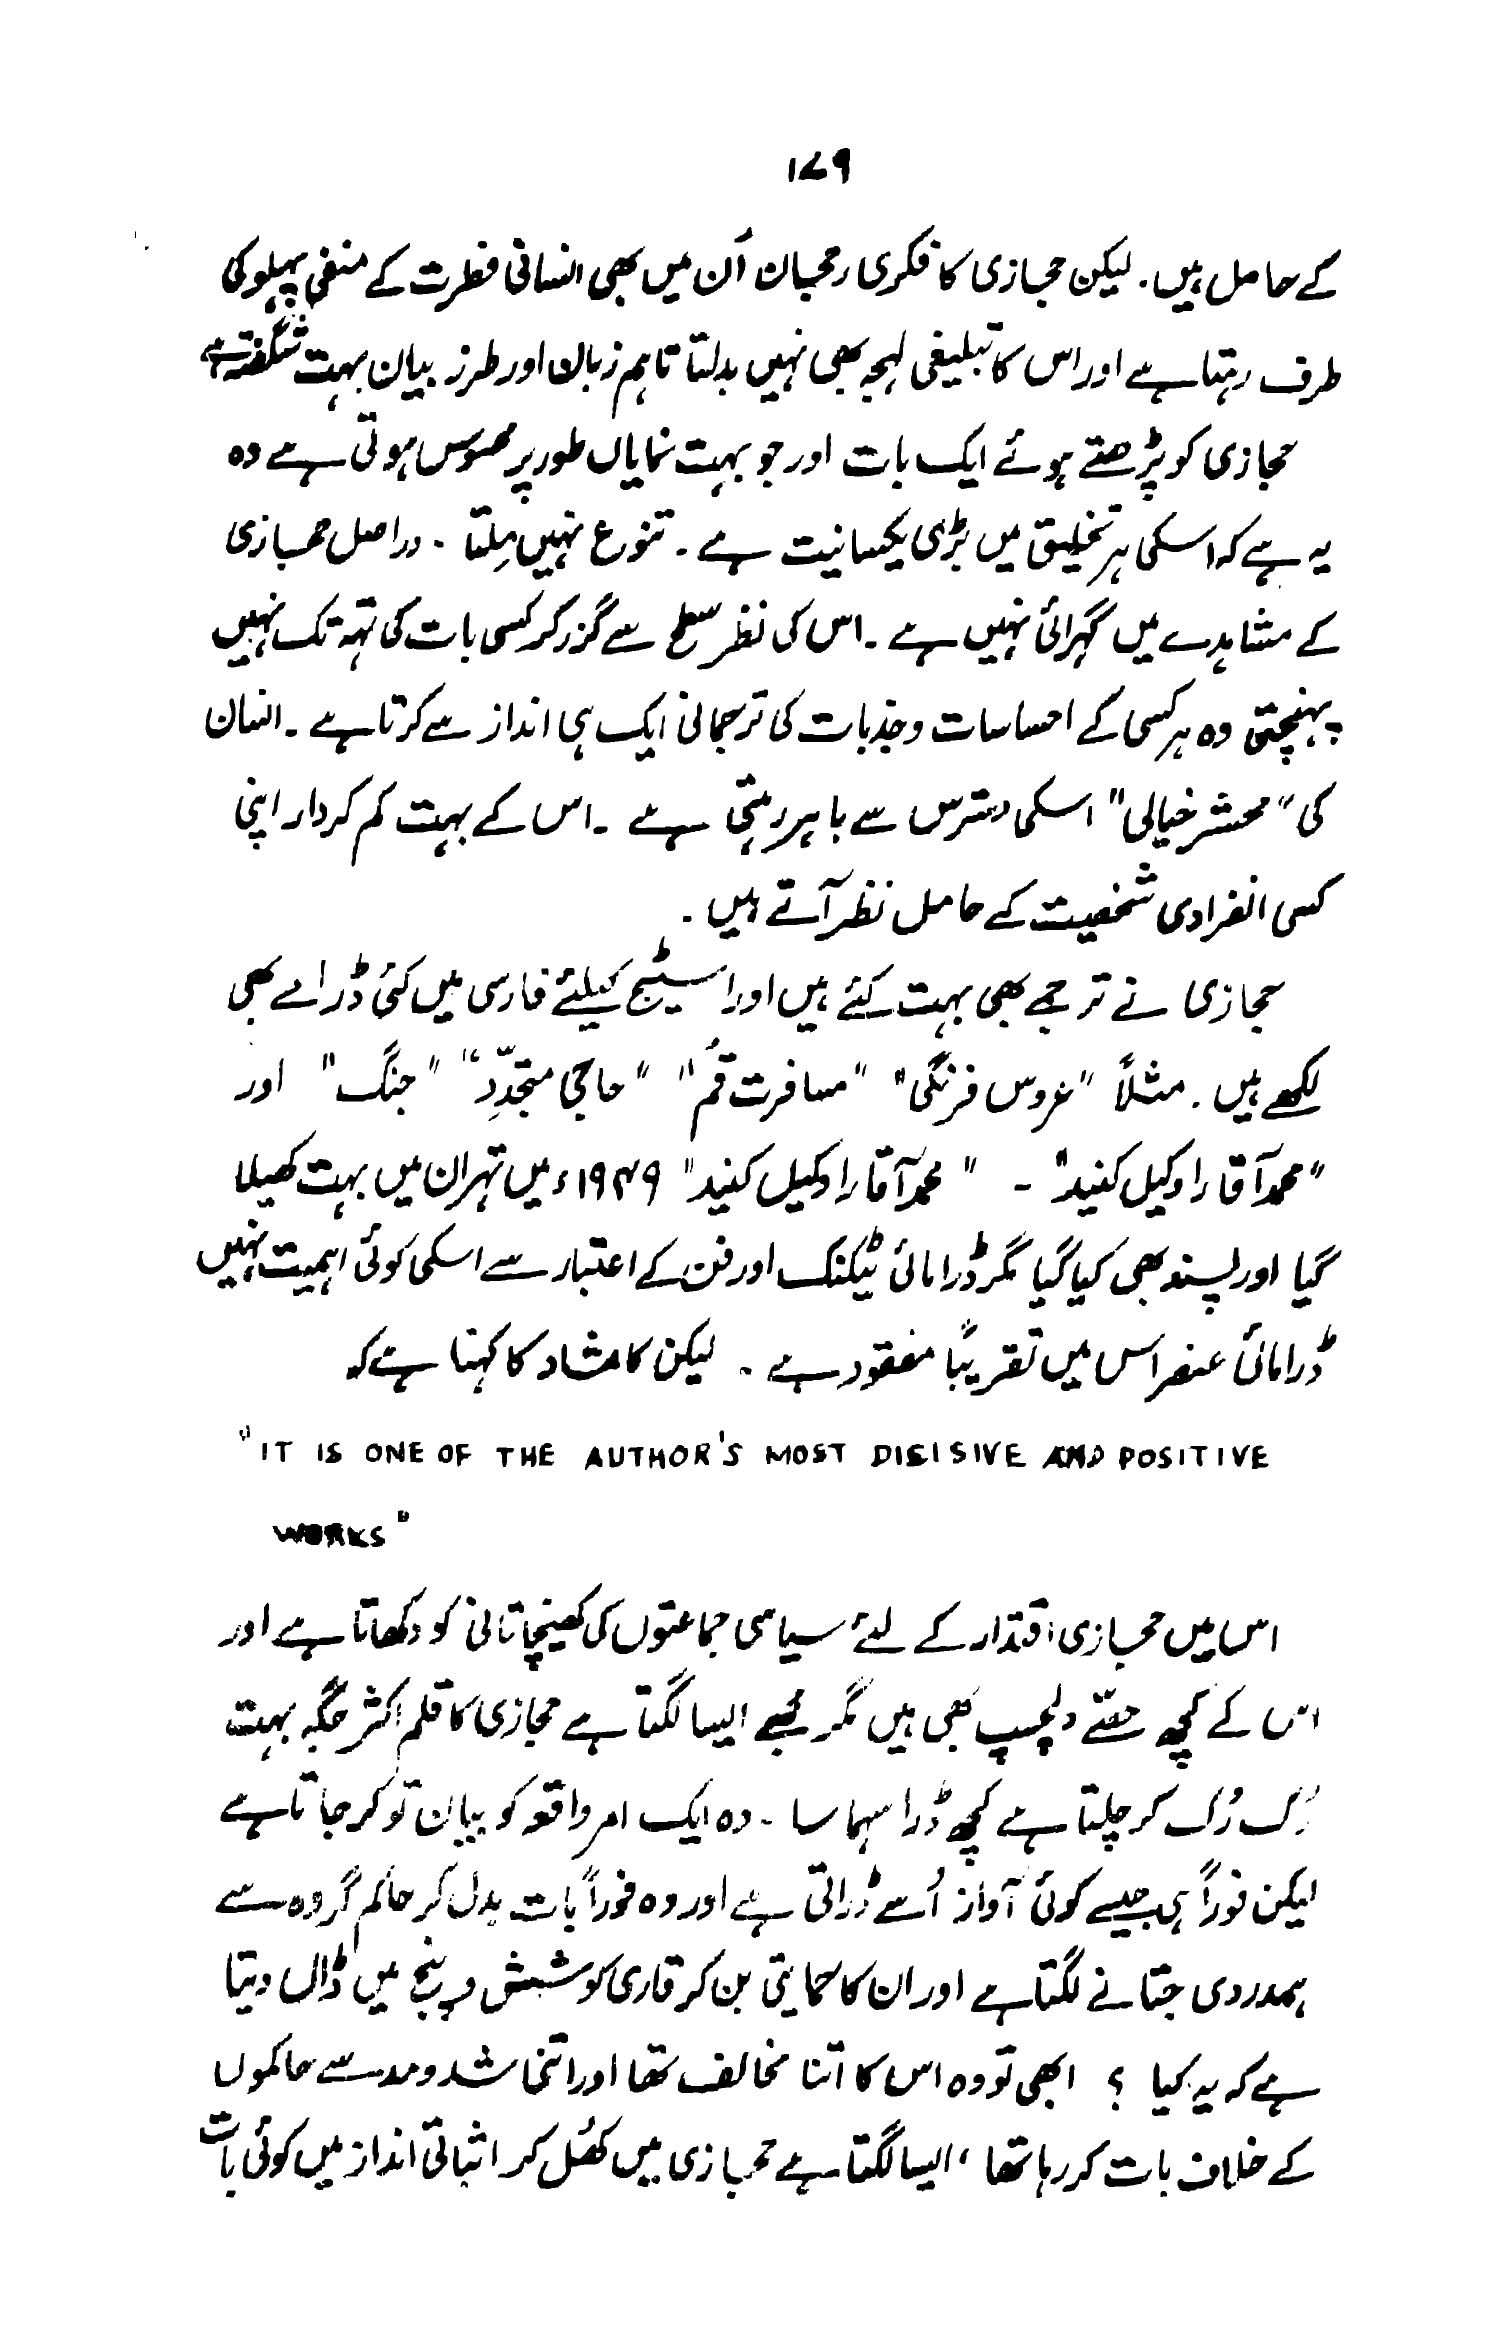 ۱۷۹
کے حامل ہیں۔ لیکن حجازی کا فکری رجحان اُن میں بھی انسانی فطرت کے منفی پہلو کی
طرف رہتا ہے اور اس کا تبلیغی لہجہ بھی نہیں بدلتا تاہم زبان اور طرز بیان بہت شگفتہ ہے
حجازی کو پڑھتے ہوئے ایک بات اور جو بہت نمایاں طور پر محسوس ہوتی ہے وہ
یہ ہے کہ اسکی ہر تخلیق میں بڑی یکسانیت ہے۔ تنوع نہیں مِلتا۔ دراصل حجازی
کے مشاہدے میں گہرائی نہیں ہے۔ اس کی نظر سطح سے گزر کر کسی بات کی تہہ تک نہیں
پہنچتی وہ ہر کسی کے احساسات و جذبات کی ترجمانی ایک ہی انداز سے کرتا ہے۔ انسان
کی "محشر خیالی" اسکی دسترس سے باہر رہتی ہے۔ اس کے بہت کم کردار اپنی
کسی انفرادی شخصیت کے حامل نظر آتے ہیں۔
حجازی نے ترجمے بھی بہت کئے ہیں اور اسٹیج کیلئے فارسی میں کئی ڈرامے بھی
لکھے ہیں۔ مثلاً "عروس فرنگی" "مسافرت قُم" "حاجی متجدِّد" "جنگ" اور
"محمد آقا را وکیل کنید"۔ "محمد آقا را وکیل کنید" ۱۹۴۹ء میں تہران میں بہت کھیلا
گیا اور پسند بھی کیا گیا مگر ڈرامائی ٹیکنک اور فن کے اعتبار سے اسکی کوئی اہمیت نہیں
ڈرامائی عنصر اس میں تقریباً مفقود ہے۔ لیکن کامشاد کا کہنا ہے کہ
"IT IS ONE OF THE AUTHOR'S MOST DISISIVE AND POSITIVE
WORKS"
اس میں حجازی اقتدار کے لئے سیاسی جماعتوں کی کھینچا تانی کو دکھاتا ہے اور
اس کے کچھ حصّے دلچسپ بھی ہیں مگر مجھے ایسا لگتا ہے حجازی کا قلم اکثر جگہ بہت
رُک رُک کر چلتا ہے کچھ ڈرا سہما سا۔ وہ ایک امر واقعہ کو بیان تو کر جاتا ہے
لیکن فوراً ہی جیسے کوئی آواز اُسے ڈراتی ہے اور وہ فوراً بات بدل کر حاکم گروہ سے
ہمدردی جتانے لگتا ہے اور ان کا حمایتی بن کر قاری کو شش و پنج میں ڈال دیتا
ہے کہ یہ کیا ؟ ابھی تو وہ اس کا اتنا مخالف تھا اور اتنی شد و مد سے حاکموں
کے خلاف بات کر رہا تھا، ایسا لگتا ہے حجازی میں کھُل کر اثباتی انداز میں کوئی بات